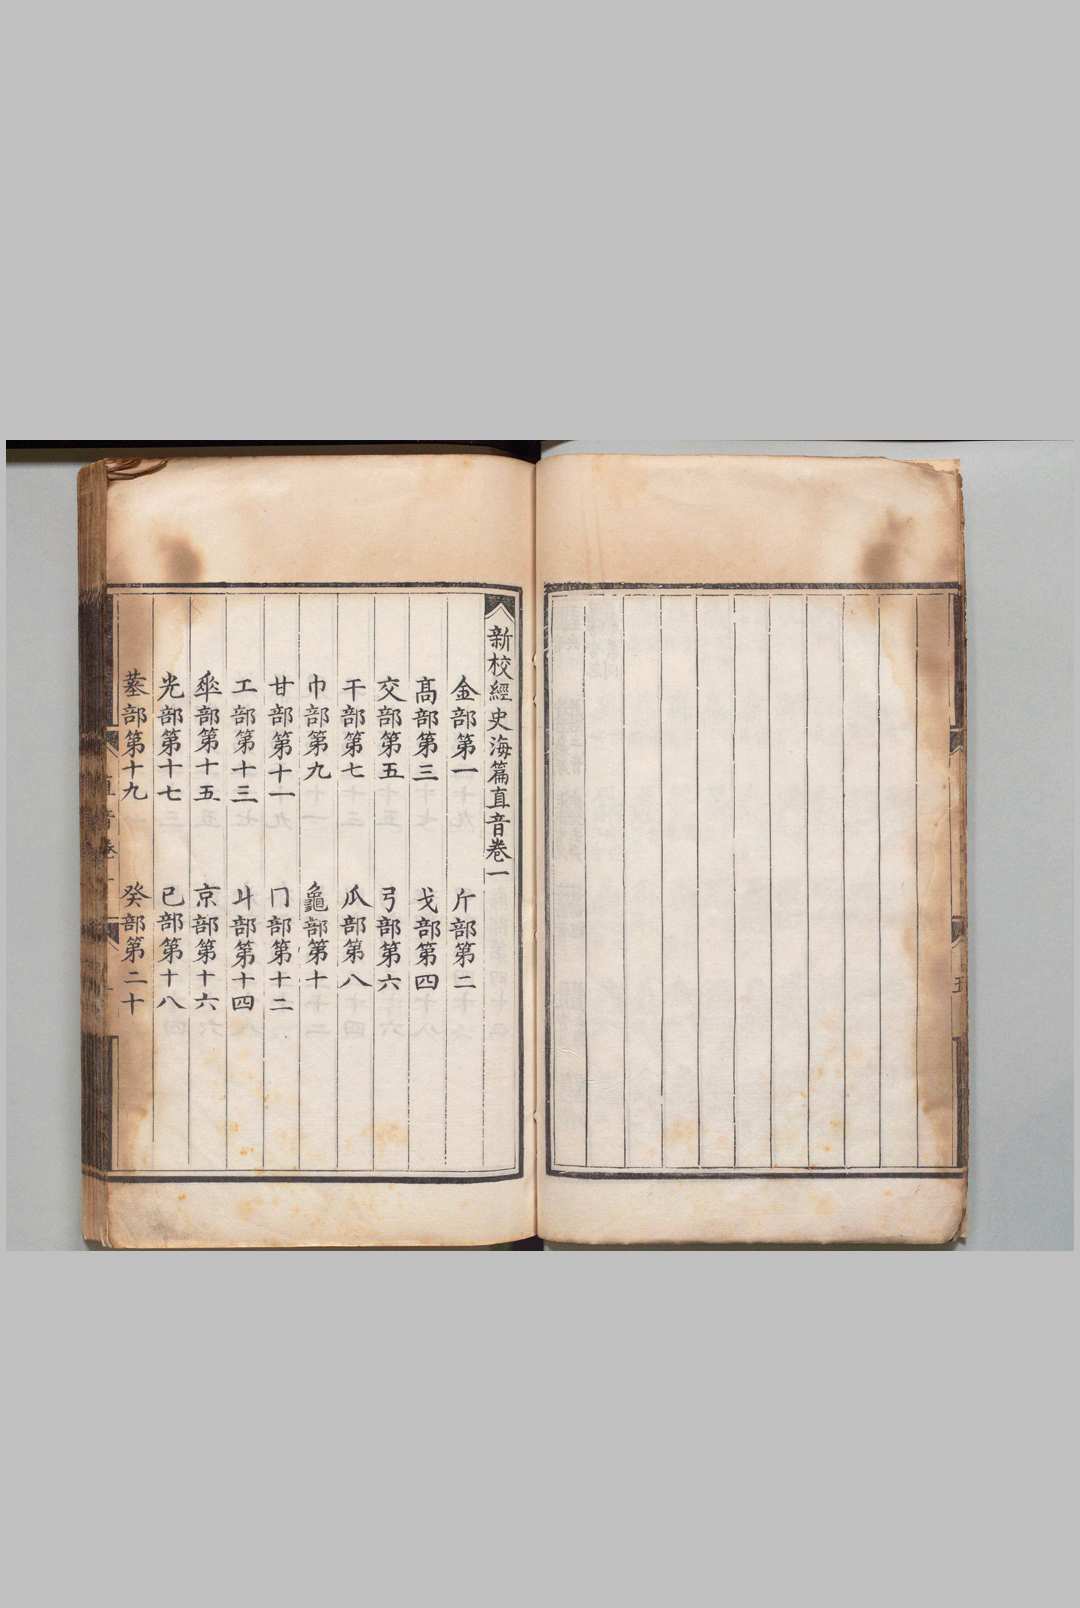 新校經史海篇直音卷一
金部第一　斤部第二
髙部第三　戈部第四
交部第五　弓部第六
干部第七　瓜部第八
巾部第九　龜部第十
甘部第十一　冂部第十二
工部第十三　丩部第十四
𠦬部第十五　京部第十六
光部第十七　已部第十八
部第十九　癸部第二十
直音卷一